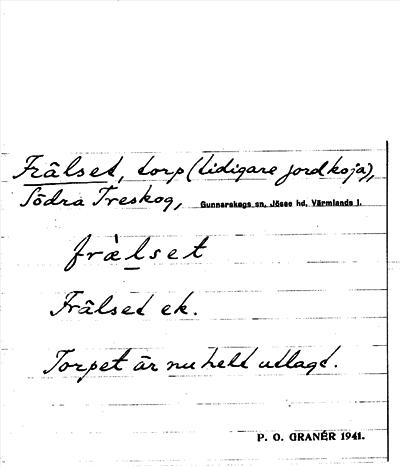 Frälset, torp (tidigare jordkoja),
Södra Treskog, Gunnarskogs sn, Jösse hd, Värmlands l.
frà̈lset
Frälset ek.
Torpet är nu helt utlagt.
P. O. GRANÉR 1941.